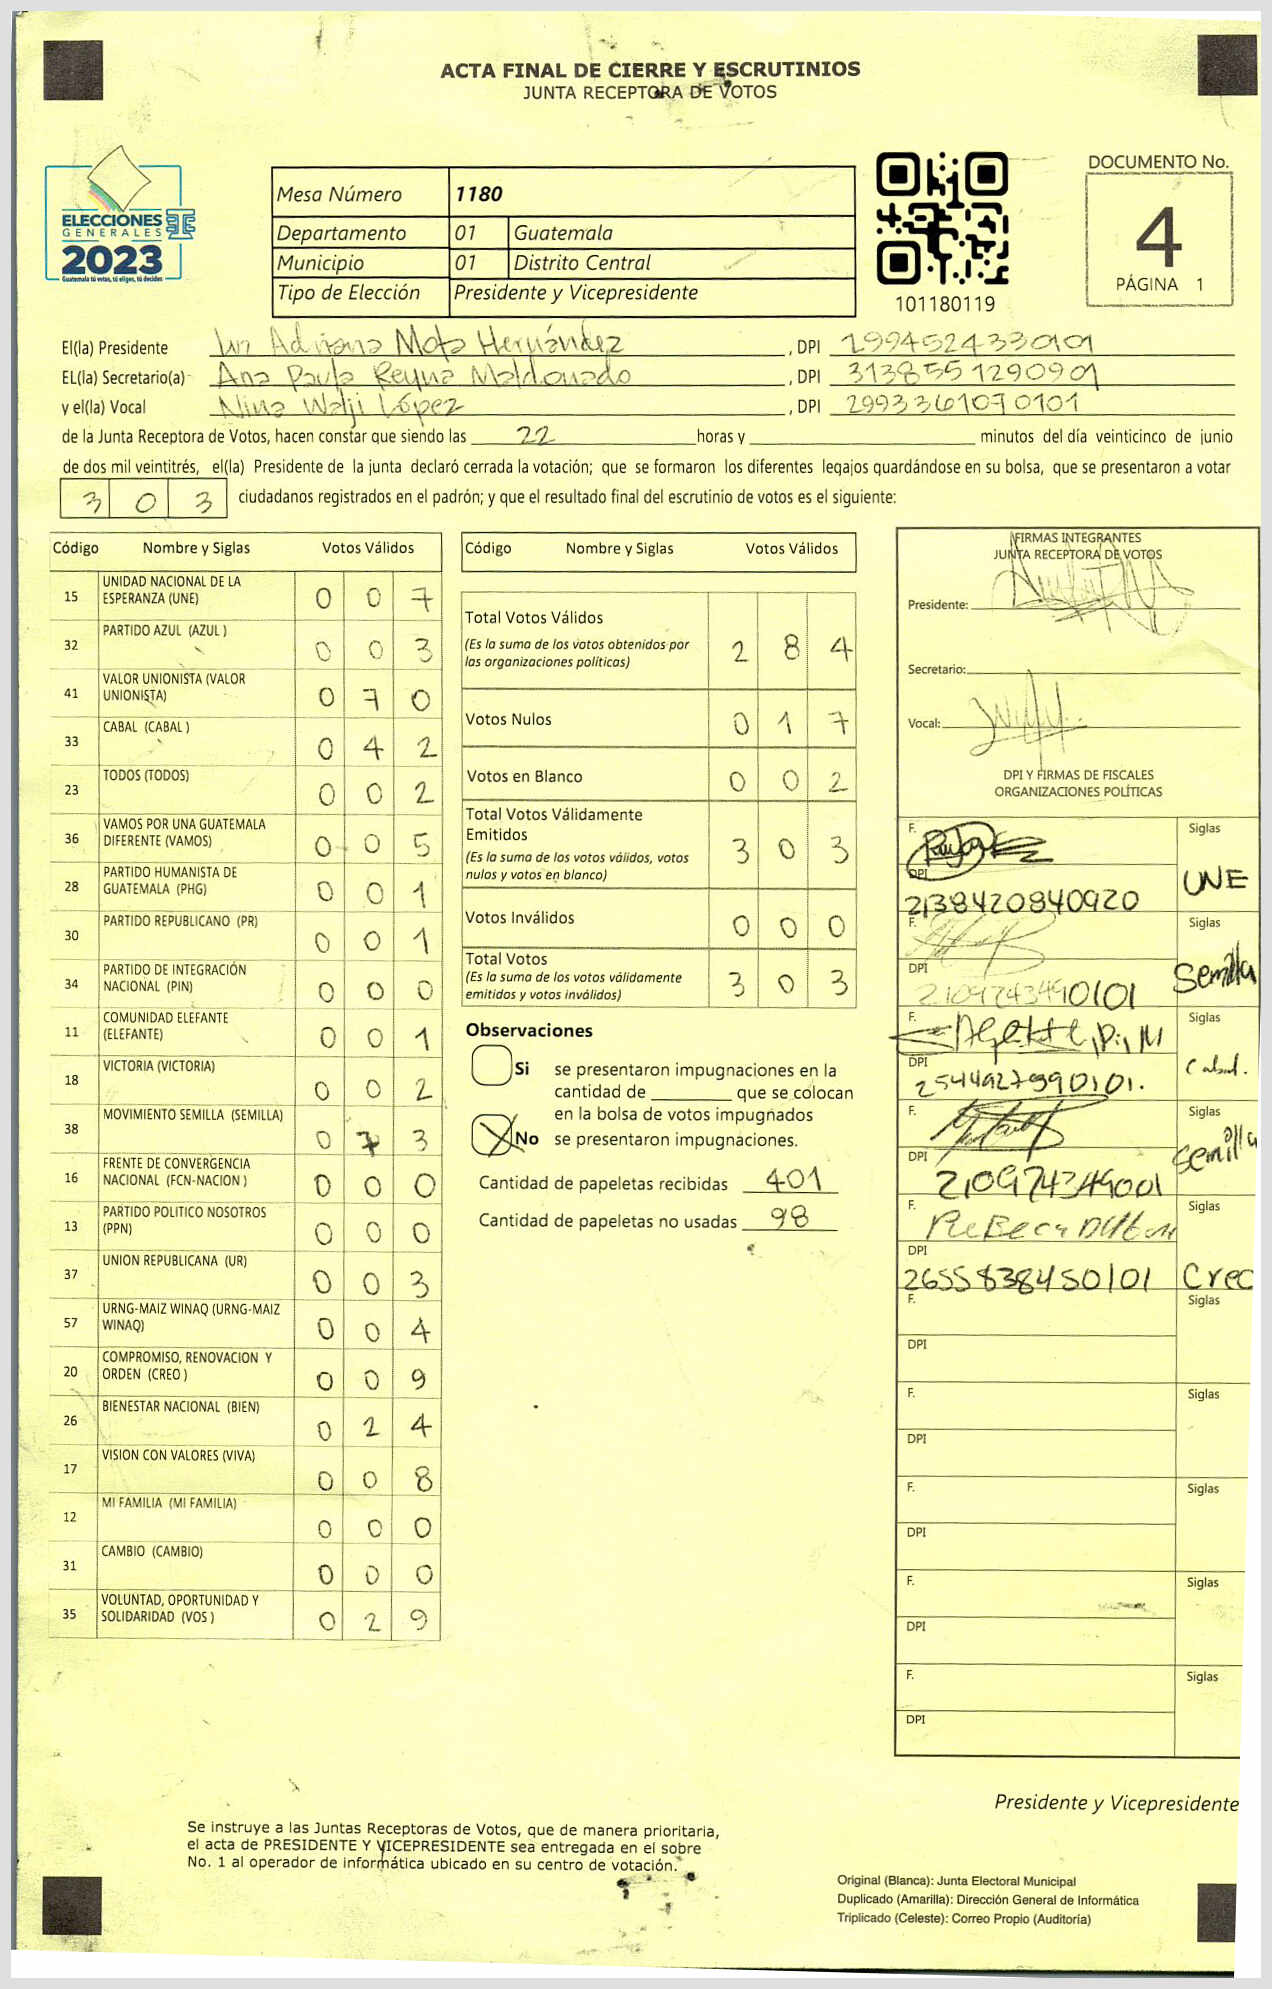 ACTA FINAL DE CIERRE Y ESCRUTINIOS
JUNTA RECEPTORA DE VOTOS
ELECCIONES
GENERALES
2023
Guatemala tú votas, tú eliges, tú decides
Mesa Número 1180
Departamento 01 Guatemala
Municipio 01 Distrito Central
Tipo de Elección Presidente y Vicepresidente
101180119
DOCUMENTO No.
4
PÁGINA 1
El(la) Presidente Adriana Mota Hernández , DPI 2994524330101
EL(la) Secretario(a) Ana Paula Reyna Maldonado , DPI 3138551290901
y el(la) Vocal Nina Walji López , DPI 2993361070101
de la Junta Receptora de Votos, hacen constar que siendo las 22 horas y minutos del día veinticinco de junio
de dos mil veintitrés, el(la) Presidente de la junta declaró cerrada la votación; que se formaron los diferentes legajos quardándose en su bolsa, que se presentaron a votar
3 0 3 ciudadanos registrados en el padrón; y que el resultado final del escrutinio de votos es el siguiente:
Código Nombre y Siglas Votos Válidos
15 UNIDAD NACIONAL DE LA
ESPERANZA (UNE) 0 0 7
32 PARTIDO AZUL (AZUL ) 0 0 3
41 VALOR UNIONISTA (VALOR
UNIONISTA) 0 7 0
33 CABAL (CABAL ) 0 4 2
23 TODOS (TODOS) 0 0 2
36 VAMOS POR UNA GUATEMALA
DIFERENTE (VAMOS) 0 0 5
28 PARTIDO HUMANISTA DE
GUATEMALA (PHG) 0 0 1
30 PARTIDO REPUBLICANO (PR) 0 0 1
34 PARTIDO DE INTEGRACIÓN
NACIONAL (PIN) 0 0 0
11 COMUNIDAD ELEFANTE
(ELEFANTE) 0 0 1
18 VICTORIA (VICTORIA) 0 0 2
38 MOVIMIENTO SEMILLA (SEMILLA) 0 7 3
16 FRENTE DE CONVERGENCIA
NACIONAL (FCN-NACION ) 0 0 0
13 PARTIDO POLITICO NOSOTROS
(PPN) 0 0 0
37 UNION REPUBLICANA (UR) 0 0 3
57 URNG-MAIZ WINAQ (URNG-MAIZ
WINAQ) 0 0 4
20 COMPROMISO, RENOVACION Y
ORDEN (CREO ) 0 0 9
26 BIENESTAR NACIONAL (BIEN) 0 2 4
17 VISION CON VALORES (VIVA) 0 0 8
12 MI FAMILIA (MI FAMILIA) 0 0 0
31 CAMBIO (CAMBIO) 0 0 0
35 VOLUNTAD, OPORTUNIDAD Y
SOLIDARIDAD (VOS ) 0 2 9
Código Nombre y Siglas Votos Válidos
Total Votos Válidos
(Es la suma de los votos obtenidos por
las organizaciones políticas) 2 8 4
Votos Nulos 0 1 7
Votos en Blanco 0 0 2
Total Votos Válidamente
Emitidos
(Es la suma de los votos válidos, votos
nulos y votos en blanco) 3 0 3
Votos Inválidos 0 0 0
Total Votos
(Es la suma de los votos válidamente
emitidos y votos inválidos) 3 0 3
Observaciones
Si se presentaron impugnaciones en la
cantidad de que se colocan
en la bolsa de votos impugnados
No se presentaron impugnaciones.
Cantidad de papeletas recibidas 401
Cantidad de papeletas no usadas 98
FIRMAS INTEGRANTES
JUNTA RECEPTORA DE VOTOS
Presidente:
Secretario:
Vocal:
DPI Y FIRMAS DE FISCALES
ORGANIZACIONES POLÍTICAS
F. Siglas
DPI UNE
2138420840920
F. Siglas
DPI Semilla
2109743490101
F. Siglas
DPI Cabal.
2544927990101.
F. Siglas
DPI Semilla
210974349001
F. Siglas
DPI
2655838450101 Creo
F. Siglas
DPI
F. Siglas
DPI
F. Siglas
DPI
F. Siglas
DPI
F. Siglas
DPI
Presidente y Vicepresidente
Se instruye a las Juntas Receptoras de Votos, que de manera prioritaria,
el acta de PRESIDENTE Y VICEPRESIDENTE sea entregada en el sobre
No. 1 al operador de informática ubicado en su centro de votación.
Original (Blanca): Junta Electoral Municipal
Duplicado (Amarilla): Dirección General de Informática
Triplicado (Celeste): Correo Propio (Auditoría)